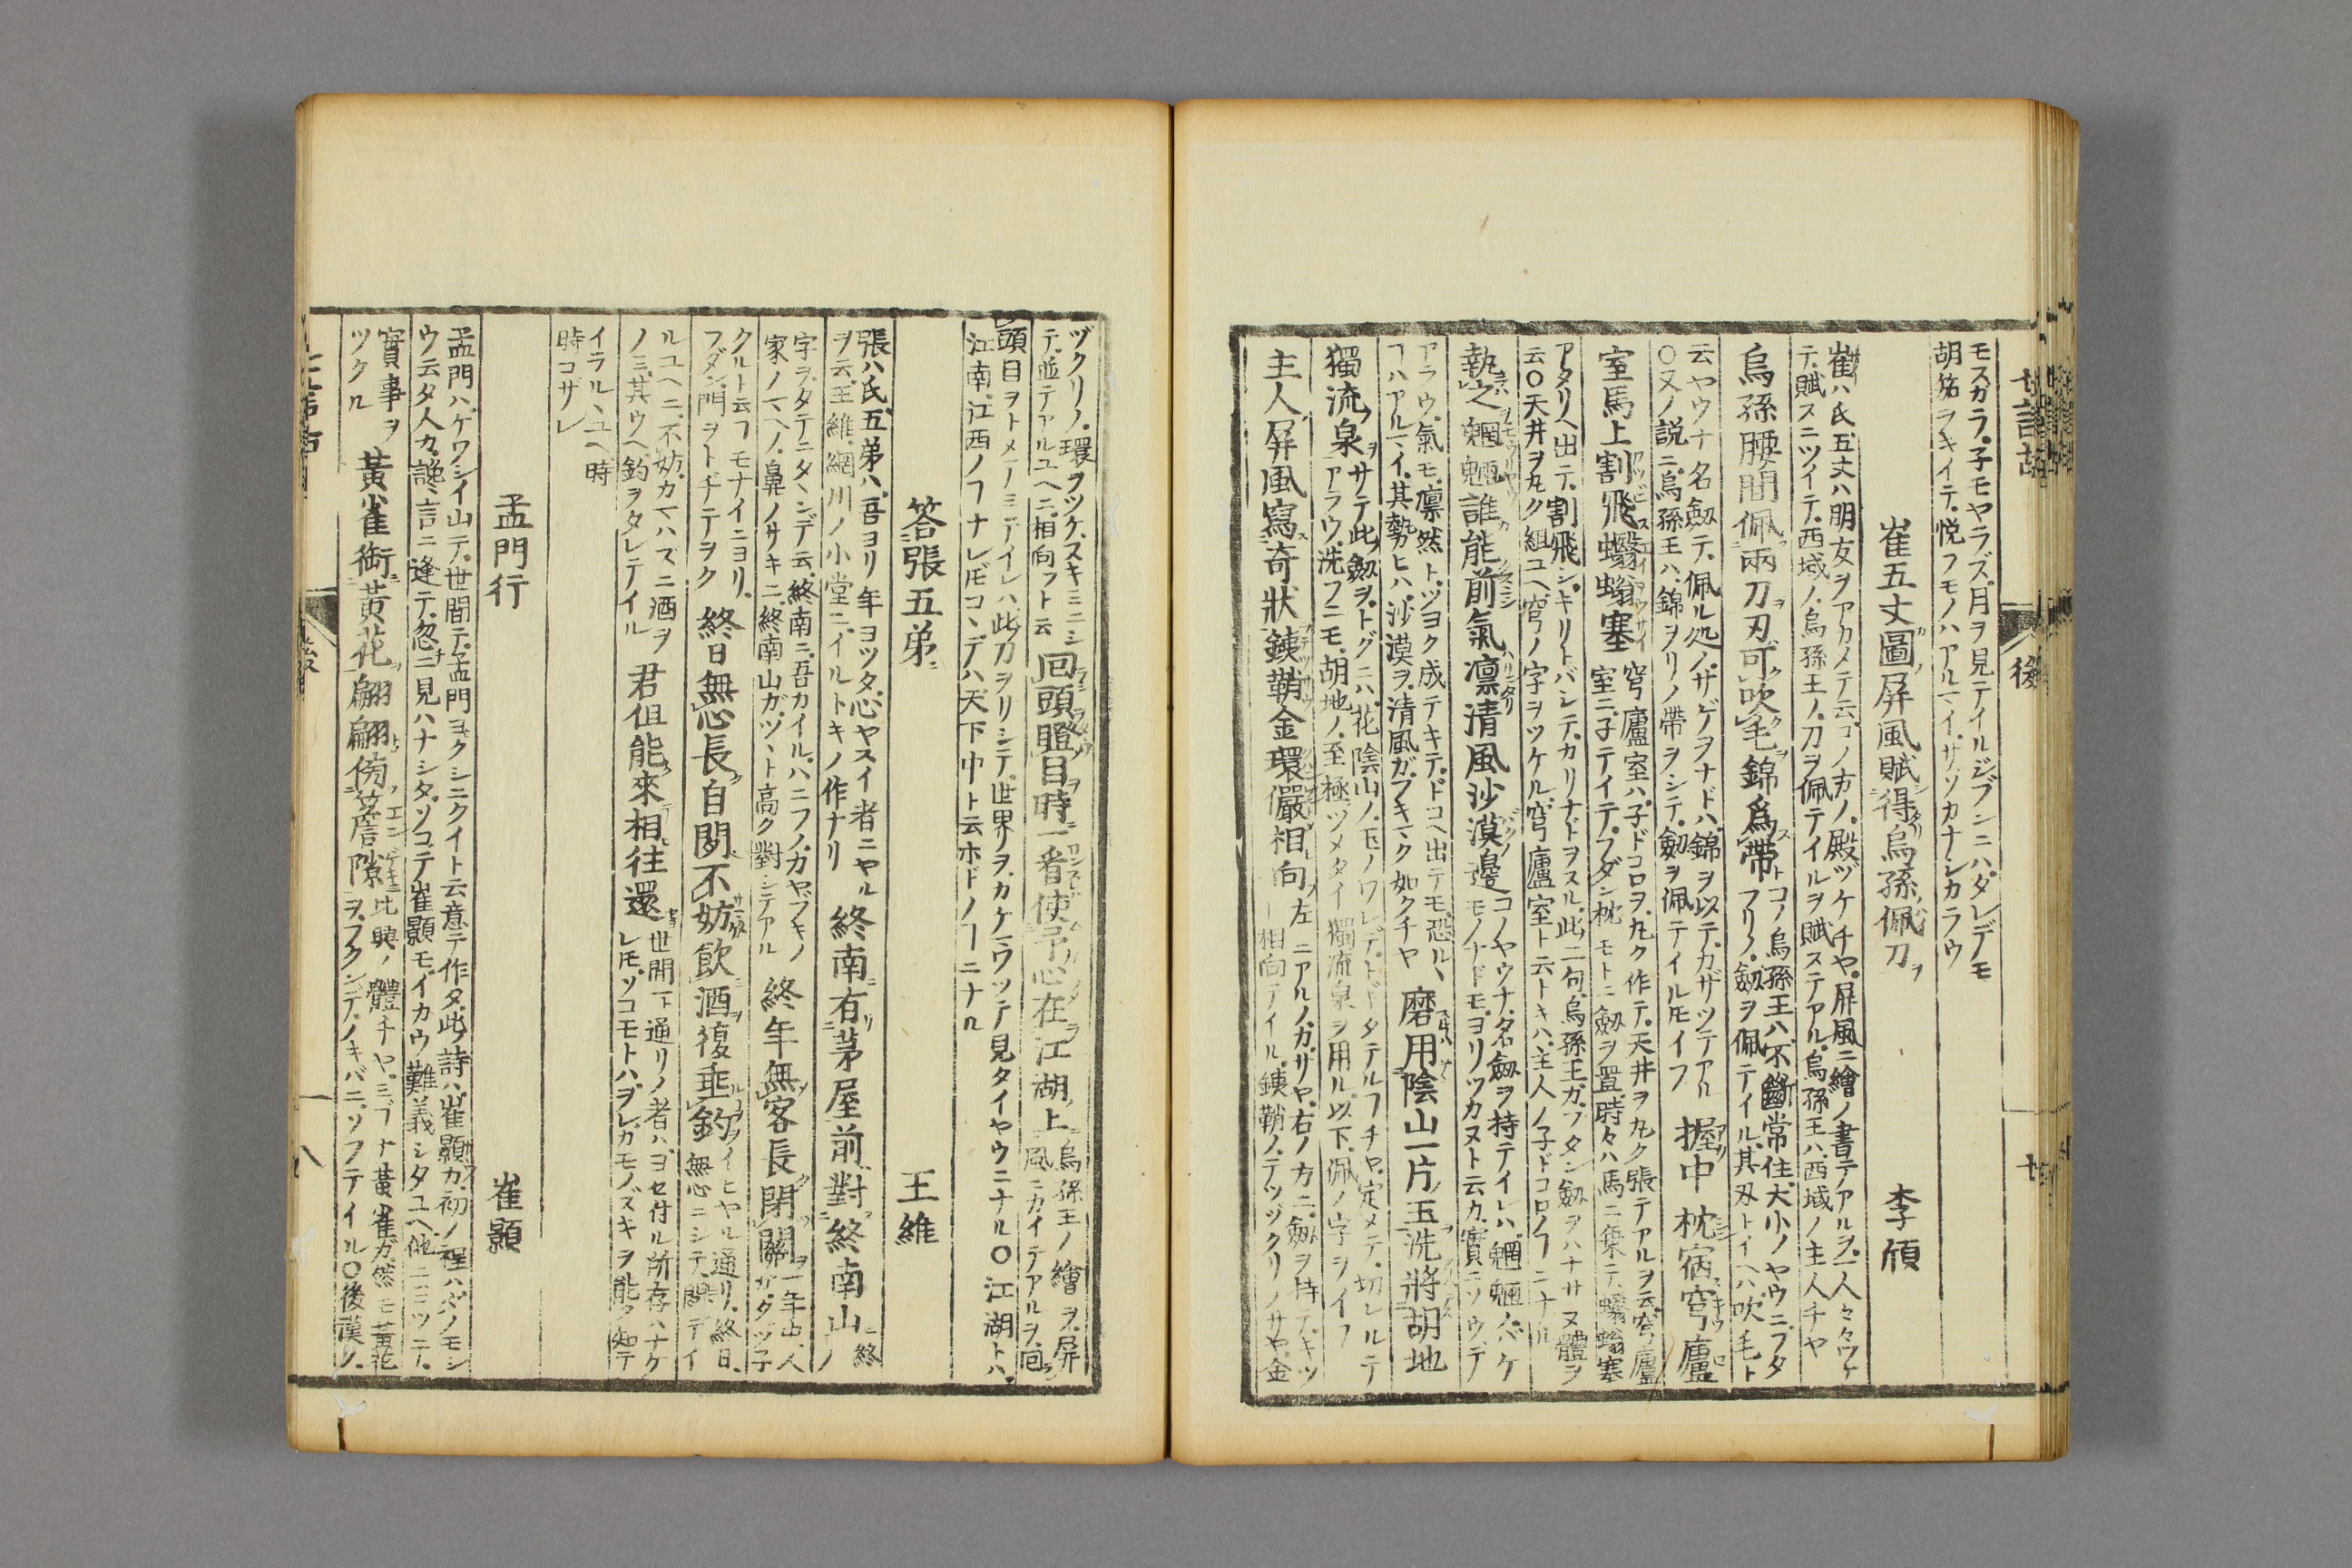 モスガラ子モヤラズ月ヲ見テイルジブンニハダレデモ
胡笳ヲキイテ悦フモノハアルマイサゾカナシカラウ
崔五丈圖屏風賦得烏孫佩刀 李頎
崔ハ氏五丈ハ朋友ヲアカメテ云コノ方ノ殿ヅケチヤ屏風ニ繪ノ書テアルヲ一人々々ワケ
テ賦スニツイテ西域ノ烏孫王ノ刀ヲ佩テイルヲ賦ステアル烏孫王ハ西域ノ主人チヤ
烏孫腰間佩兩刀刃可吹毛錦爲帶
コノ烏孫王ハ不斷常住大小ノヤウニフタ
フリノ劔ヲ佩テイル其刄トイヘハ吹毛ト
云ヤウナ名劔テ佩ル処ノサゲヲナドハ錦ヲ以テカザツテアル
○又ノ説ニ烏孫王ハ錦ヲリノ帶ヲシテ劔ヲ佩テイルトモイフ
握中枕宿穹廬
室馬上割飛蠮螉塞
穹廬室ハ子ドコロヲ丸ク作テ天井ヲ丸ク張テアルヲ云穹廬
室ニ子テイテフダン枕モトニ劔ヲ置時々ハ馬ニ乗テ蠮螉塞
アタリヘ出テ割飛シキリトバシテカリナドヲスル此二句烏孫王ガフタン劔ヲハナサヌ體ヲ
云○天井ヲ丸ク組ユヘ穹ノ字ヲツケル穹廬室ト云トキハ主人ノ子ドコロノコニナル
執之魍魎誰能前氣凛清風沙漠邊
コノヤウナ名劔ヲ持テイレハ魍魎ノバケ
モノナドモヨリツカヌト云カ實ニソウデ
アラウ氣モ凛然トツヨク成テキテドコヘ出テモ恐ルヽ
コハアルマイ其勢ヒハ沙漠ヲ清風ガフキマク如クチヤ
磨用陰山一片玉洗將胡地
獨流泉
サテ此劔ヲトグニハ花陰山ノ玉ノワレデトギタテルコチヤ定メテ切レルテ
アラウ洗フニモ胡地ノ至極ツメタイ獨流泉ヲ用ル以下佩ノ字ヲイフ
主人屏風寫奇狀銕鞘金環儼相向
左ニアルノカザヤ右ノ方ニ劔ヲ持テキツ
ト相向テイル銕鞘ノテツヅクリノサヤ金
ヅクリノ環ヲツケスキミニシ
テ並テアルユヘニ相向フト云
囘頭瞪目時一看使予心在江湖上
烏孫王ノ繪ヲ屏
風ニカイテアルヲ囘
頭目ヲトメテミテイレハ此刀ヲリシテ世界ヲカケマワツテ見タイヤウニナル○江湖トハ
江南江西ノコナレトモコヽデハ天下中ト云ホドノコニナル
答張五弟 王維
張ハ氏五弟ハ吾ヨリ年ヨツタ心ヤスイ者ニヤル
ヲ云王維網川ノ小堂ニイルトキノ作ナリ
終南有茅屋前對終南山
終
ノ
字ヲタテニタヽンデ云終南ニ吾カイルハニフノカヤフキノ
家ノマヘノ鼻ノサキニ終南山ガヅヽト高ク對シテアル
終年無客長閉關
一年中人
ガタツ子
クルト云コモナイニヨリ
フダン門ヲトヂテヲク
終日無心長自閑不妨飲酒復垂釣
イヒヤル通リ終日
無心ニシテ閑デイ
ルユヘニ不妨カマハズニ酒ヲ
ノミ其ウヘ釣ヲタレテイル
君但能來相往還
世閒下通リノ者ハヨセ付ル所存ハナケ
レトモソコモトハヲレガモノズキヲ能ク知テ
イラルヽユヘ時
時コザレ
孟門行 崔顥
孟門ハゲワシイ山テ世間テ孟門ヨクシニクイト云意テ作タ此詩ハ崔顥カ初ノ程ハタノモシ
ウ云タ人カ讒言ニ逢テ忽ニ見ハナシタソコテ崔顥モイカウ難義シタユヘ他ニヨツテ
實事ヲ
ツクル
黃雀銜黃花翩翩傍簷隙
比興ノ體チヤミゴナ黃雀ガ然モ黃花
ヲフクンデノキバニソフテイル○後漢ノ